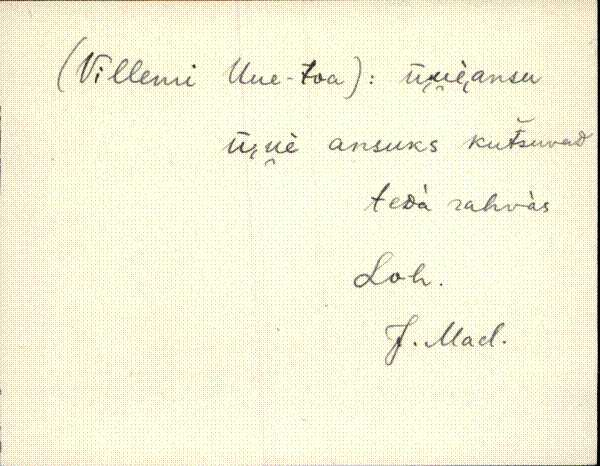 (Villemi Uue-toa): ū̬u̯è̬ansu
ū̬u̯è ansuks kutšuvad
tedà rahvàs
Loh.
J. Mäel.